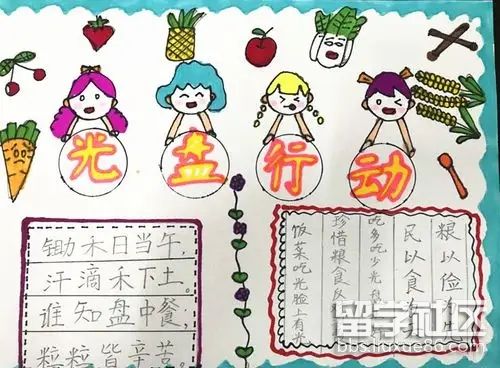 光盘行动
锄禾日当午,
汗滴禾下土。
谁知盘中餐,
粒粒皆辛苦。
粮以俭
民以食
吃多吃少光
珍惜粮食
饭菜吃光脸上有
留学社区
bbs.liuxue86.com